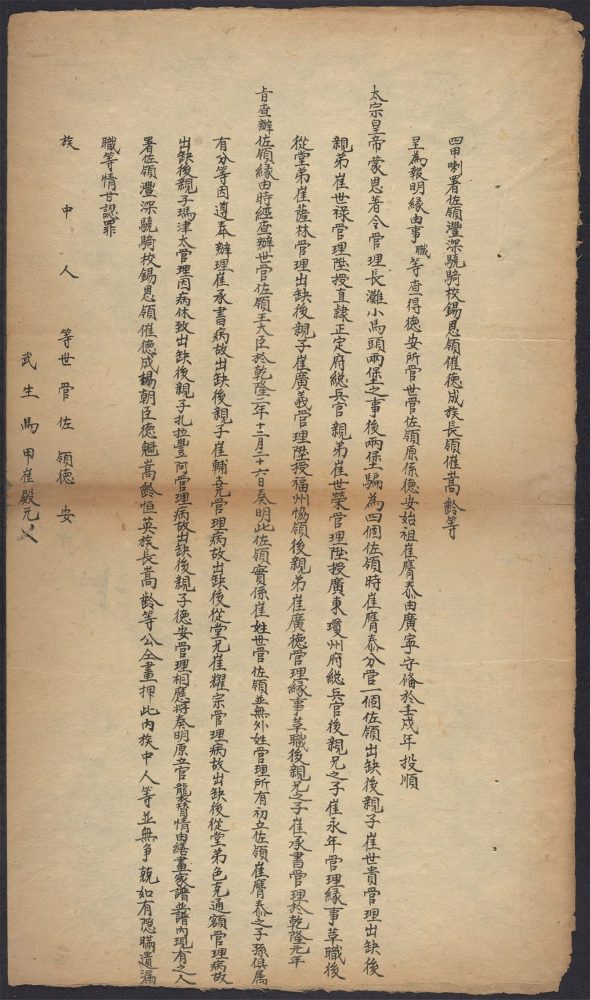 四甲喇署佐領灃深驍騎校錫恩領催德成族長領催嵩齡等
呈為報明緣由事職等查得德安所管世管佐領原係德安始祖崔膺泰由廣寧守俻於壬戌年投順
太宗皇帝蒙恩著令管理長灘小馬頭兩堡之事後兩堡騙為四個佐領時崔膺泰分管一個佐領出缺後親子崔世貴管理出缺後
親弟崔世祿管理陞授直隷正定府総兵官親弟崔世榮管理陞授廣東瓊州府総兵官後親兄之子崔永年管理緣事革職後
從堂弟崔蔭林管理出缺後親子崔廣義管理陞授福州協領後親弟崔廣德管理緣事革職後親兄之子崔承書管理於乾隆元年
旨查辦佐領緣由時經查辦世管佐領王大臣於乾隆二年十二月二十六日奏明此佐領實係崔姓世管佐領並無外姓管理所有初立佐領崔膺泰之子孫俱属
有分等因遵奉辦理崔承書病故出缺後親子崔輔堯管理病故出缺後從堂兄崔耀宗管理病故出缺後從堂弟色克通額管理病故
出缺後親子瑪津太管理因病休致出缺後親子扎拉豐阿管理病故出缺後親子德安管理相應將奏明原立官襲替情由繕畫家譜並譜內現有之人
署佐領灃深驍騎校錫恩領催德成楊朝臣德魁嵩齡恒英族長嵩齡等公仝畫押此內族中人等並無爭競如有隱瞞遺漏
職等情甘認罪
族中人等世管佐領德安
武生馬甲崔殿元